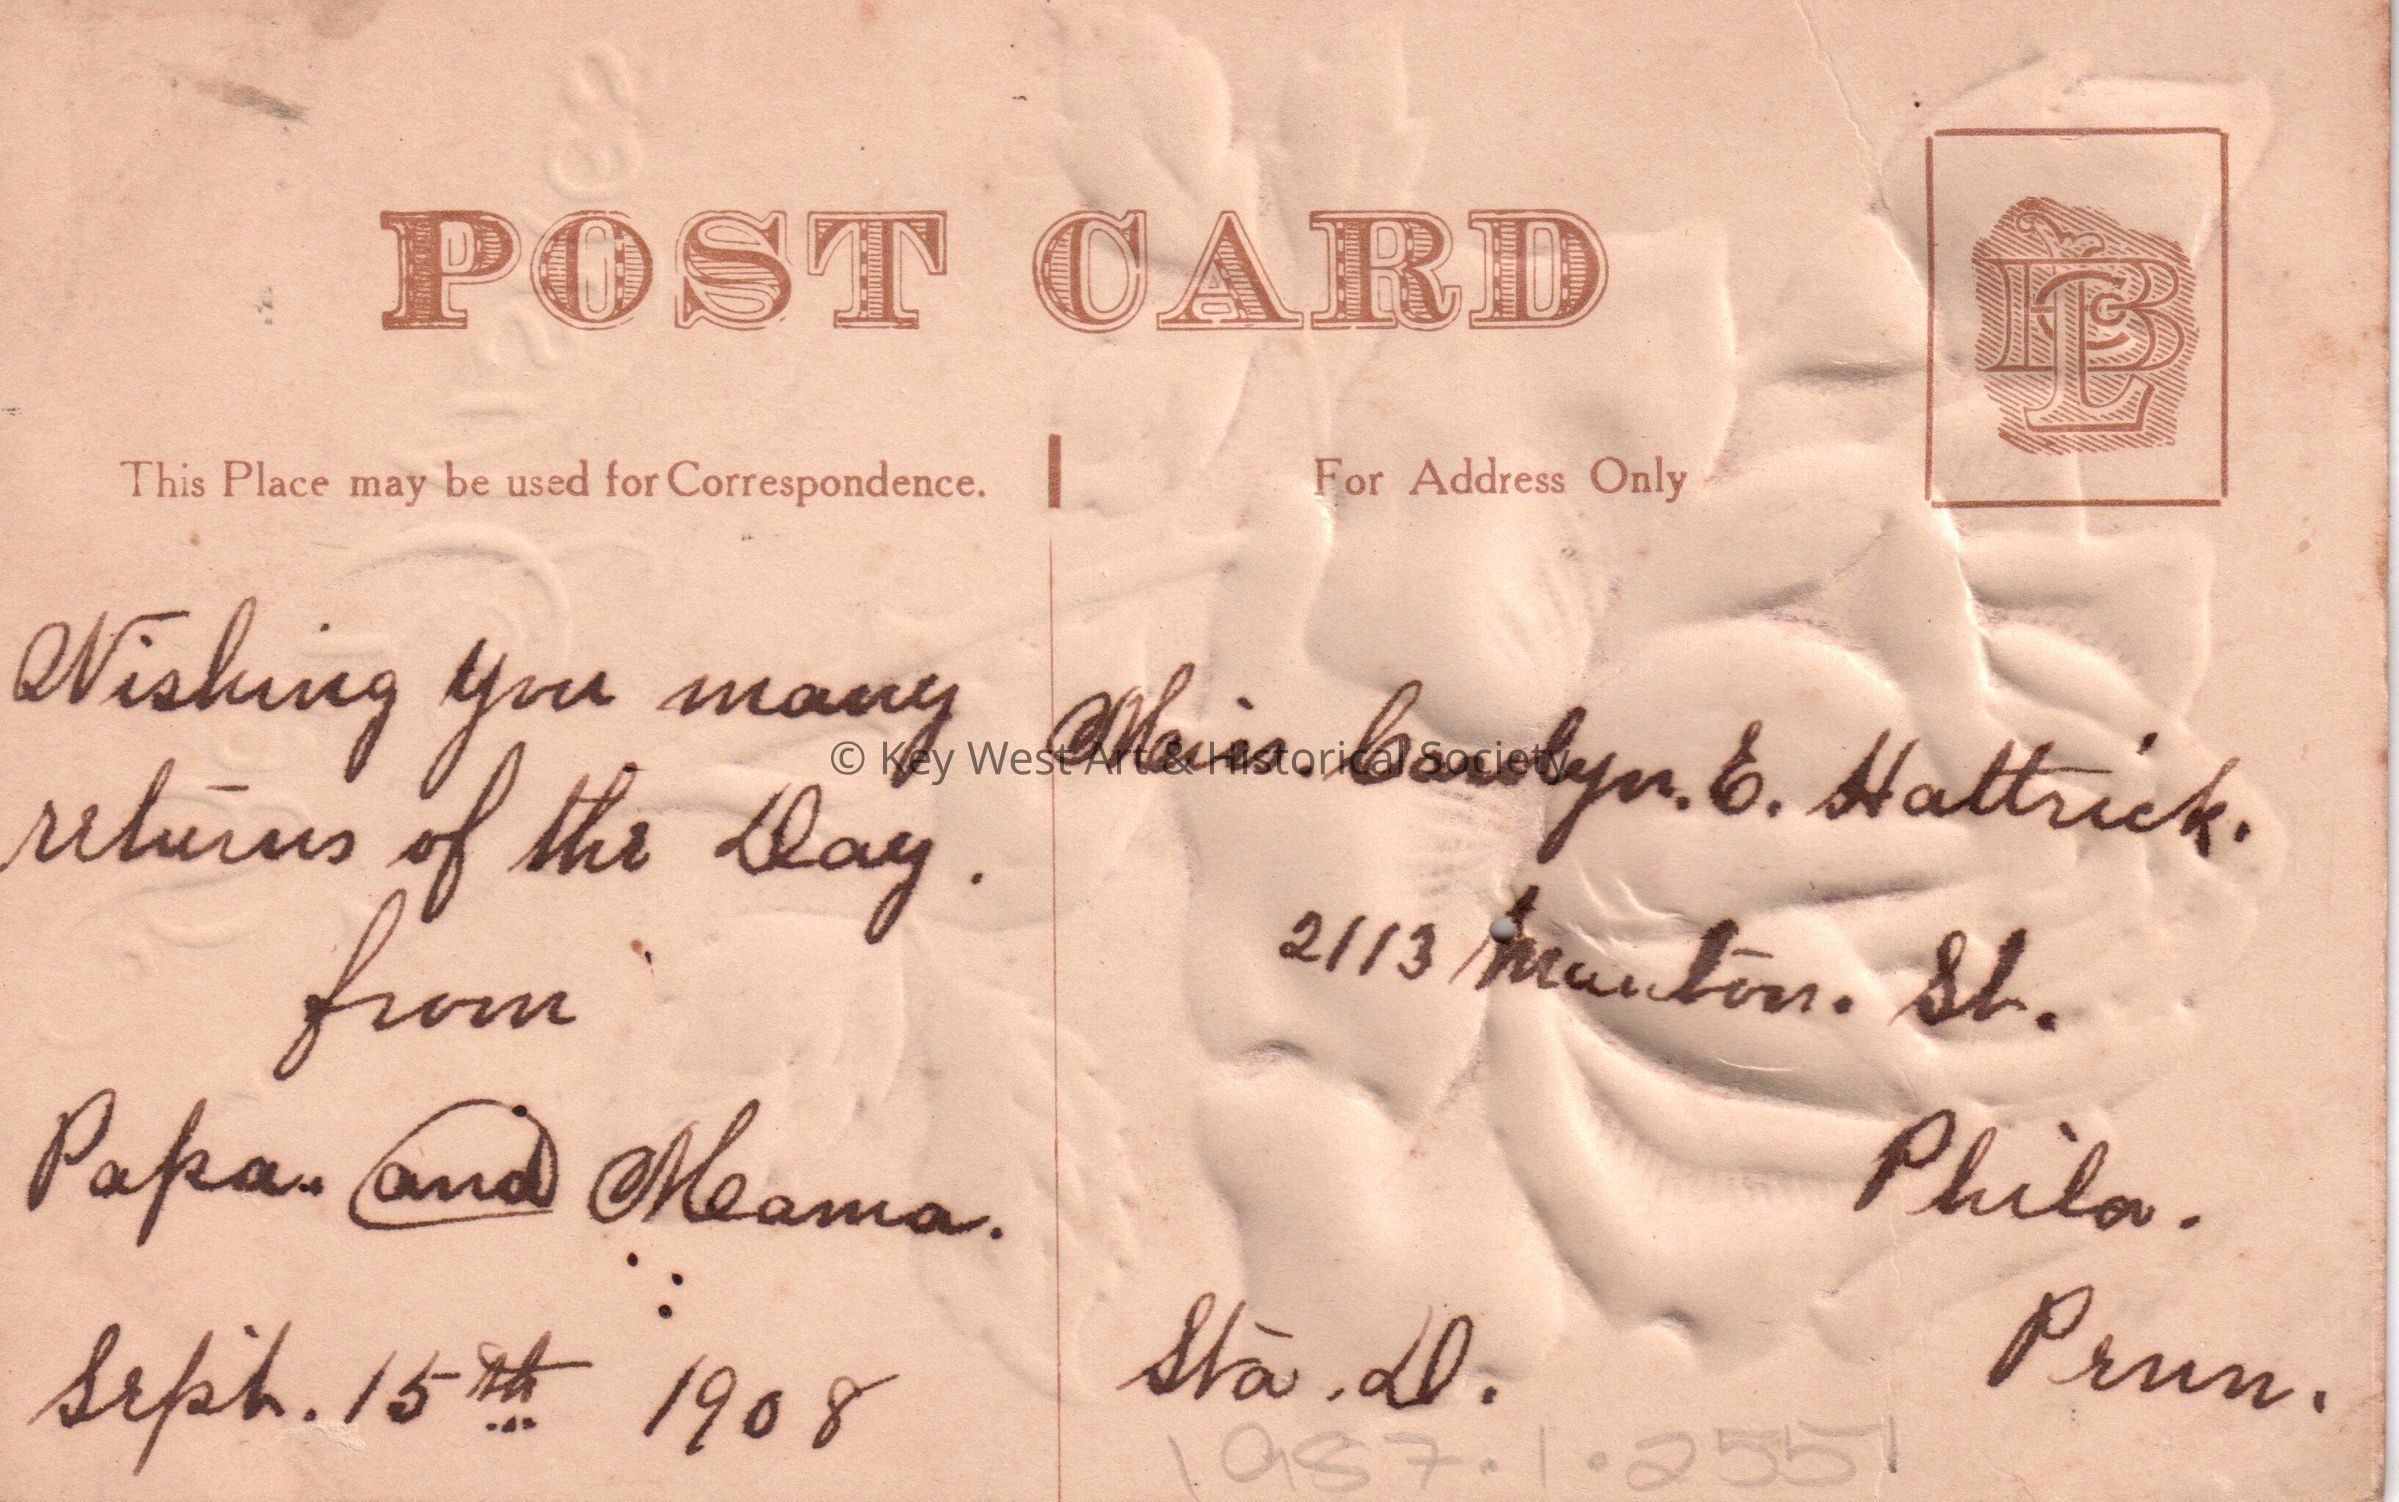 POST CARD
This Place may be used for Correspondence.
For Address Only
Wishing you many
returns of the Day.
from
Papa. and Mama.
Sept. 15th 1908
Miss. Carolyn. E. Hattrick.
2113 Manton. St.
Phila.
Sta. D.
Penn.
1987.1.2551
© Key West Art & Historical Society